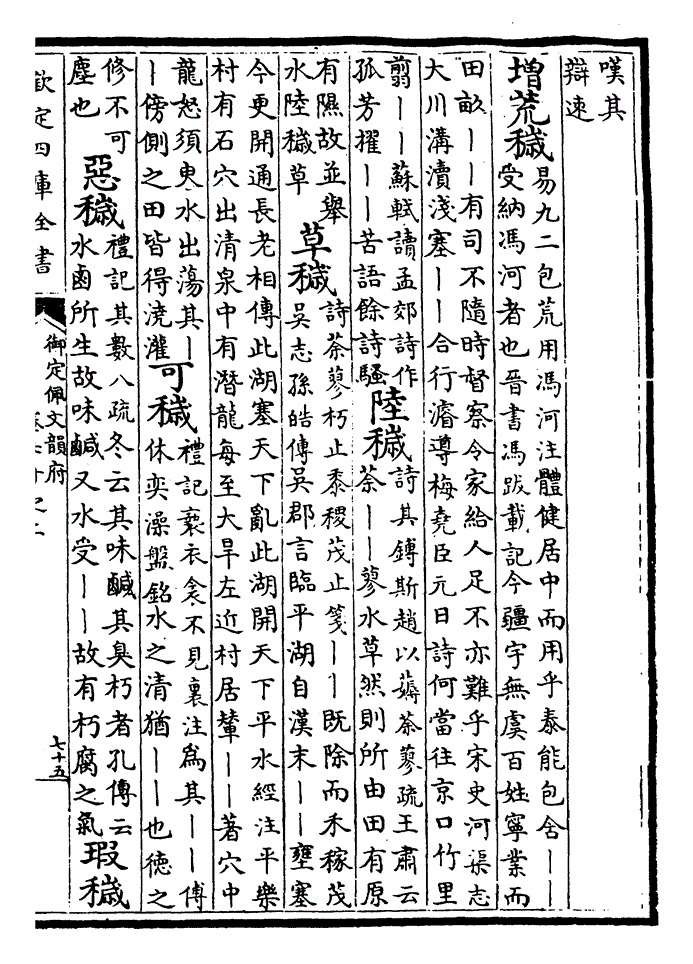 嘆其
辯速
増荒穢
易九二包荒用馮河注體健居中而用乎泰能包含丨丨
受納馮河者也晉書馮跋載記今疆宇無虞百姓寧業而
田畝丨丨有司不隨時督察令家給人足不亦難乎宋史河渠志
大川溝瀆淺塞丨丨合行濬導梅堯臣元日詩何當往京口竹里
翦丨丨蘇軾讀孟郊詩作
孤芳擢丨丨苦語餘詩騷
陸穢
詩其鎛斯趙以薅荼蓼疏王肅云
荼丨丨蓼水草然則所由田有原
有隰故並舉
水陸穢草
草穢
詩荼蓼朽止黍稷茂止箋丨丨既除而禾稼茂
吳志孫皓傳吳郡言臨平湖自漢末丨丨壅塞
今更開通長老相傳此湖塞天下亂此湖開天下平水經注平樂
村有石穴出清泉中有潛龍每至大旱左近村居輦丨丨著穴中
龍怒須臾水出蕩其丨
丨傍側之田皆得澆灌
可穢
禮記褻衣衾不見裏注為其丨丨傅
休奕澡盤銘水之清猶丨丨也徳之
修不可
塵也
惡穢
禮記其數八疏冬云其味鹹其臭朽者孔傳云
水鹵所生故味鹹又水受丨丨故有朽腐之氣
瑕穢
欽定四庫全書
御定佩文韻府
七十五